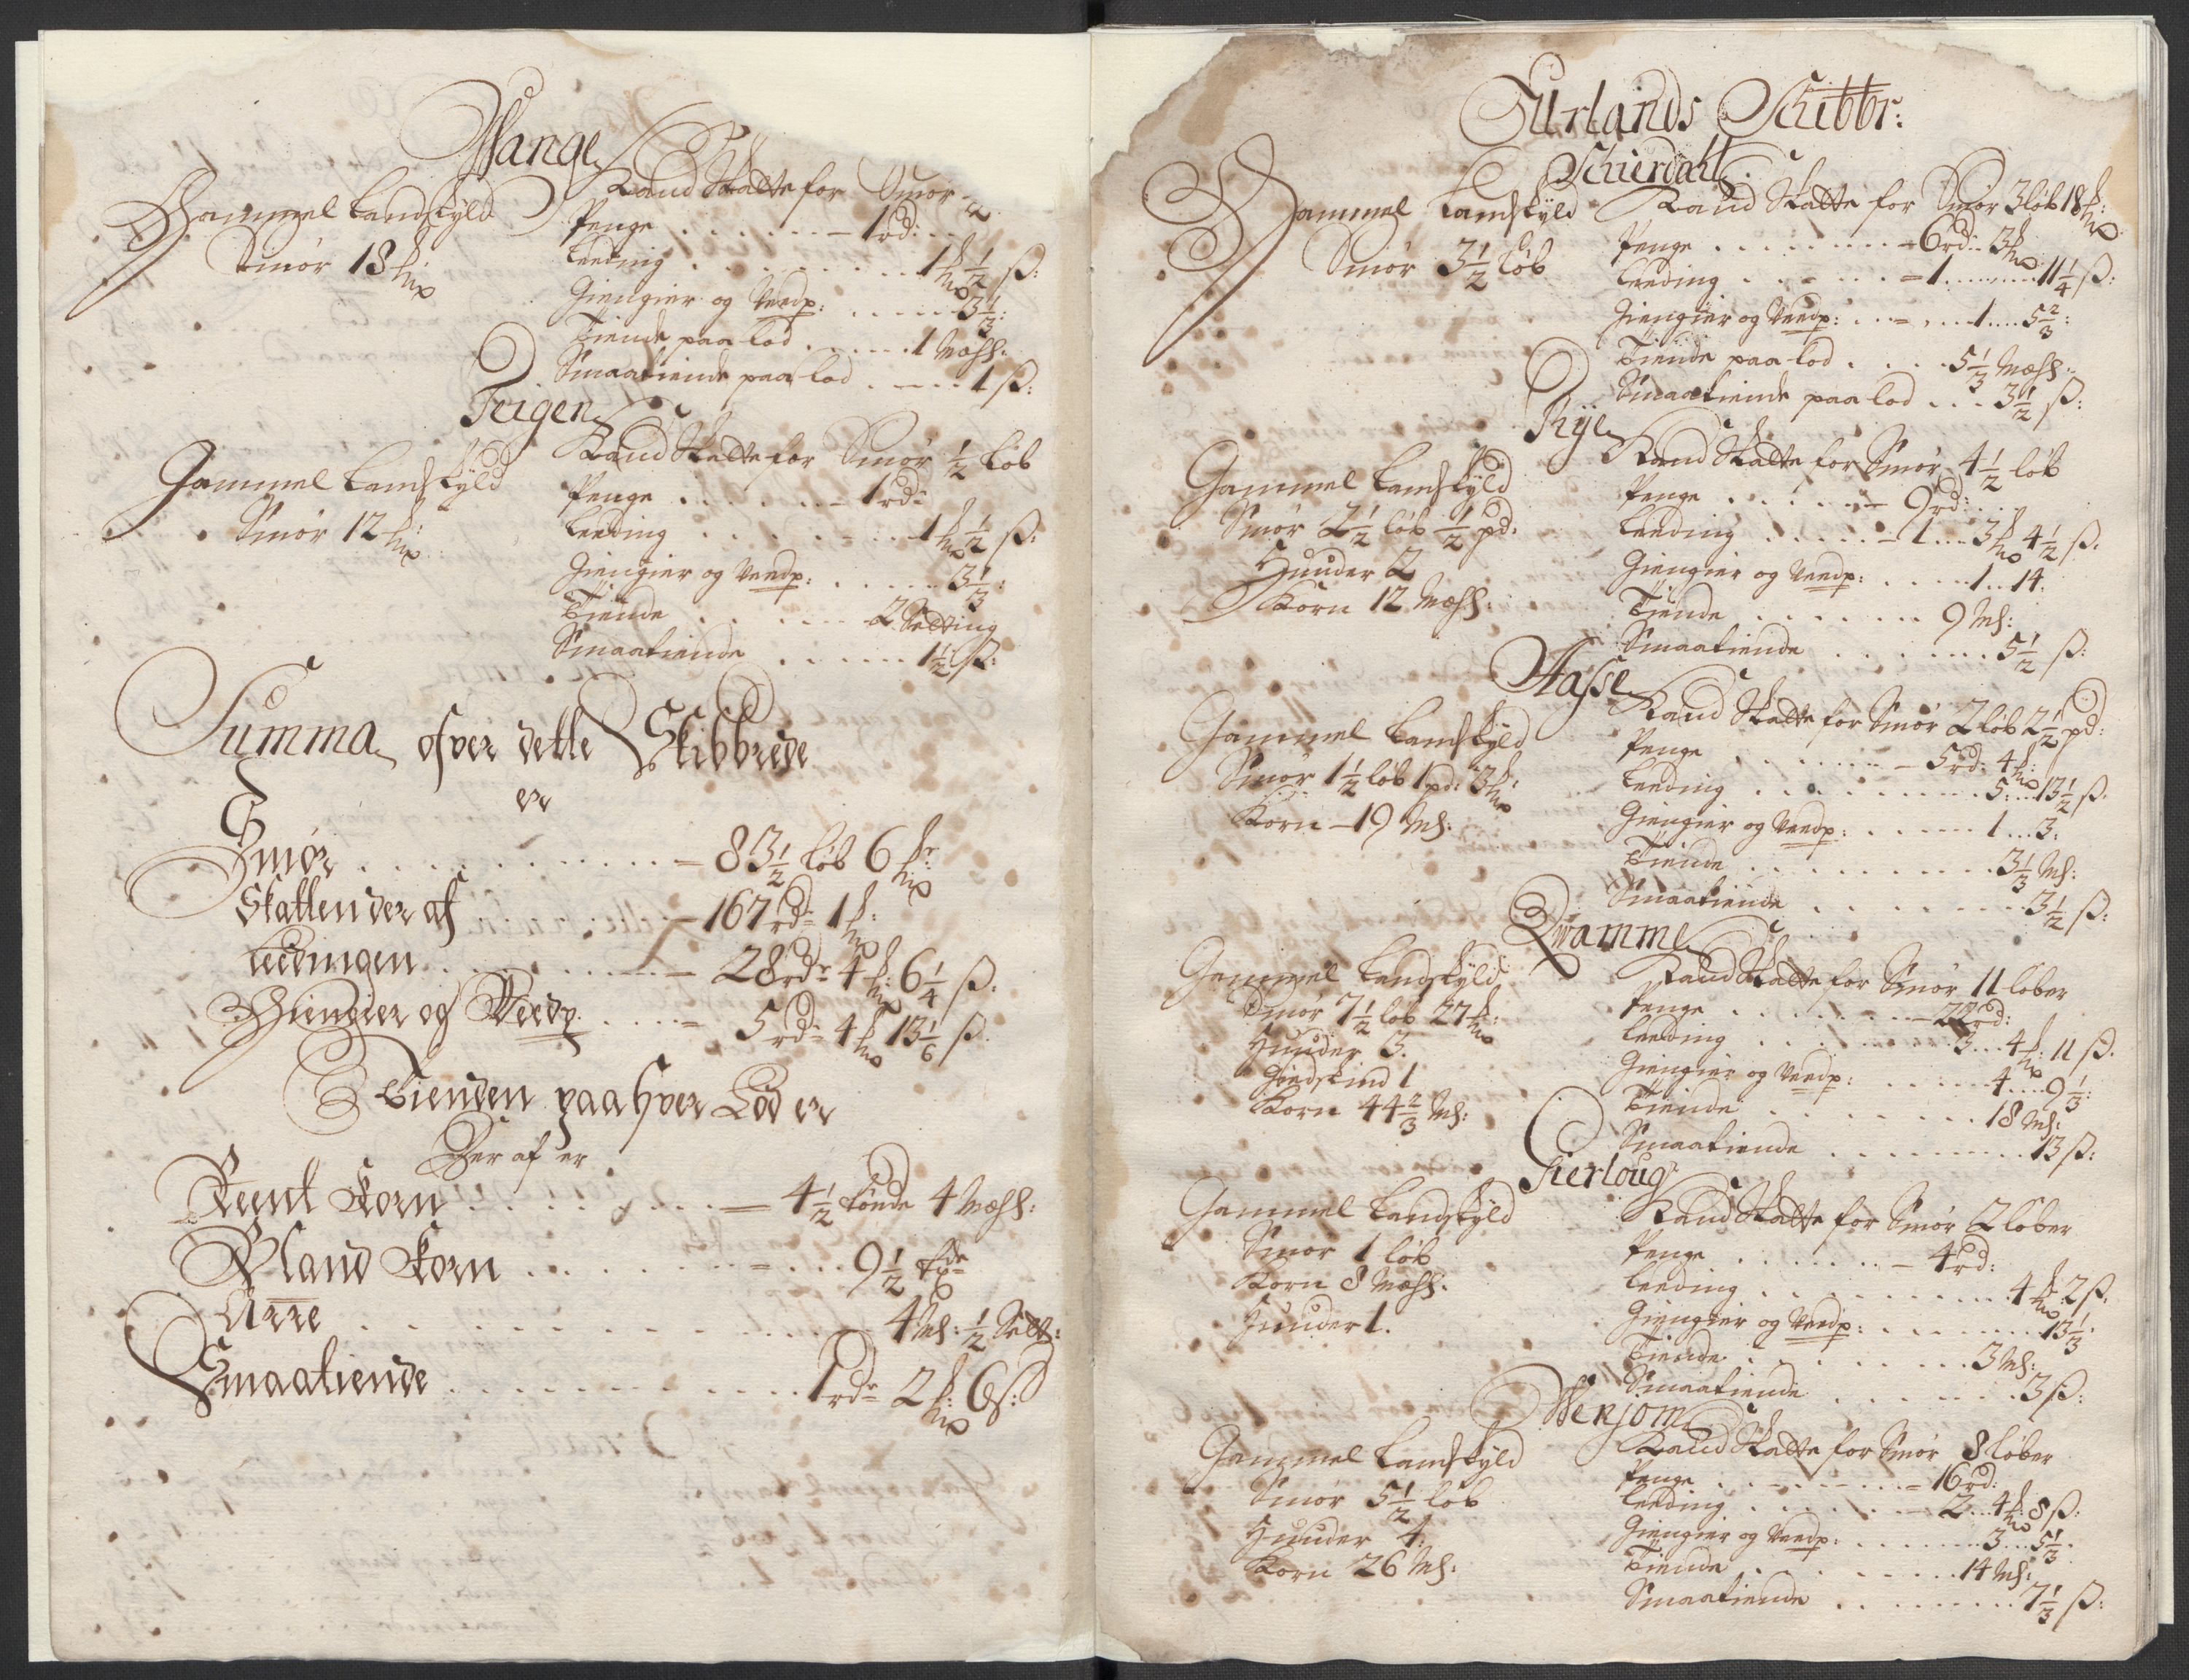 Wange
Gammel Landskyld
Smör 18 mk:
Kand Skatte for Smör
Penge . . . . . . 1 rd:
Leeding . . . . . . 1 mk ½ ß:
Giengier og Weedp: . . . . . 3⅓:
Tiende paa lod . . . . . 1 Mæhl:
Smaatiende paa lod . . . . 1 ß:
Teigen
Gammel Landskyld
Smör 12 mk:
Kand Skatte for Smör ½ Löb
Penge . . . . . . 1 rd:
Leeding . . . . . . 1 mk ½ ß:
Giengier og Weedp: . . . . . 3⅓:
Tiende . . . . . . 2 Setting
Smaatiende . . . . . . 1½ ß:
Summa ofver dette Skibbrede
er
Smör . . . . . . 83½ löb 6 mkr
Skatten der af . . . 167 rdr 1 mk:
Leedingen . . . . . . 28 rdr 4 mk: 6¼ ß:
Giengier og Weedp: . . . . 5 rdr 4 mk 13⅙ ß.
Tienden paa hver Lod er
Der af er
Reent Korn . . . . . . 4½ tönde 4 Mæhl:
Bland Korn . . . . . . 9½ tdr
Arre . . . . . . 4 Mh: ½ Sett:
Smaatiende . . . . . . 1 rdr 2 mk: 6 ß:
Surlands Schibbr:
Schierdahl
Gammel Landskyld
Smör 3½ löb
Kand Skatte for Smör 3 löb 18 mk:
Penge . . . . . . 6 rd: 3 mk
Leeding . . . . . . 1 . . . . 11¼ ß:
Giengier og Weedp: . . . . 1 . . . . 5⅔:
Tiende paa lod . . . . 5⅓ Mæhl:
Smaatiende paa lod . . . 3½ ß:
Rye
Gammel Landskyld
Smör 2½ löb ½ pd.
Huuder 2
Korn 12 Mæhl:
Kand Skatte for Smör 4½ löb
Penge . . . . . . 9 rd:
Leeding . . . . . . 1 . . . 3 mk 4½ ß.
Giengier og Weedp: . . . . . 1 . . 14.
Tiende . . . . . . 9 Mh:
Smaatiende . . . . . . 5½ ß:
Aasse
Gammel Landskyld
Smör 1½ löb 1 pd: 3 mk:
Korn 19 Mh:
Kand Skatte for Smör 2 löb 2½ pd:
Penge . . . . . . 5 rd: 4 mk:
Leeding . . . . . . 5 . . . 13½ ß.
Giengier og Weedp: . . . . . 1 . . . 3:
Tiende . . . . . . 3⅓ Mh:
Smaatiende . . . . . . 3½ ß:
Qwamme
Gammel Landskyld
Smör 7½ löb 27 mk:
Huuder 3.
Giedskind 1
Korn 44⅔ Mh:
Kand Skatte for Smör 11 löber
Penge . . . . . . 22 rd:
Leeding . . . . . . 3 . . . 4 mk: 11 ß.
Giengier og Weedp: . . . . . 4 . . . 9⅓:
Tiende . . . . . . 18 Mh:
Smaatiende . . . . . . 13 ß:
Sierloug
Gammel Landskyld
Smör 1 löb
Korn 8 Mæhl.
Huuder 1.
Kand Skatte for Smör 2 löber
Penge . . . . . . 4 rd:
Leeding . . . . . . 4 mk: 2 ß.
Giengier og Weedp: . . . . . . 13⅓.
Tiende . . . . . . 3 Mh:
Smaatiende . . . . . . 3 ß:
Wenjom
Gammel Landskyld
Smör 5½ löb
Huuder 4.
Korn 26 Mh:
Kand Skatte for Smör 8 löber
Penge . . . . . . 16 rd:
Leeding . . . . . . 2 . . . 4 mk: 8 ß:
Giengier og Weedp: . . . . . . 3 . . . 5⅓.
Tiende . . . . . . 14 Mh:
Smaatiende . . . . . . 7⅓ ß: